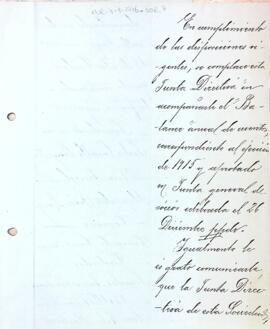 En cumplimiento
de las disposiciones vi-
gentes, se complace esta
Junta Directiva en
acompañarle el Ba-
lance anual de cuentas,
correspondiente al ejercicio
de 1915 y aprobado
en Junta general de
socios celebrada el 26
Diciembre ppdo.
Igualmente le
es grato comunicarle,
que la Junta Direc-
tiva de esta Sociedad,